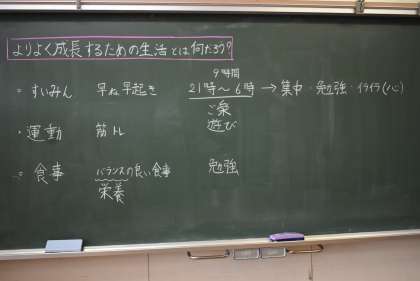 よりよく成長するための生活とは何だろう?
9時間
・すいみん 早ね早起き 21時〜6時 → 集中・勉強・イライラ(心)
ご楽
・運動 筋トレ 遊び
・食事 バランスの良い食事 勉強
栄養